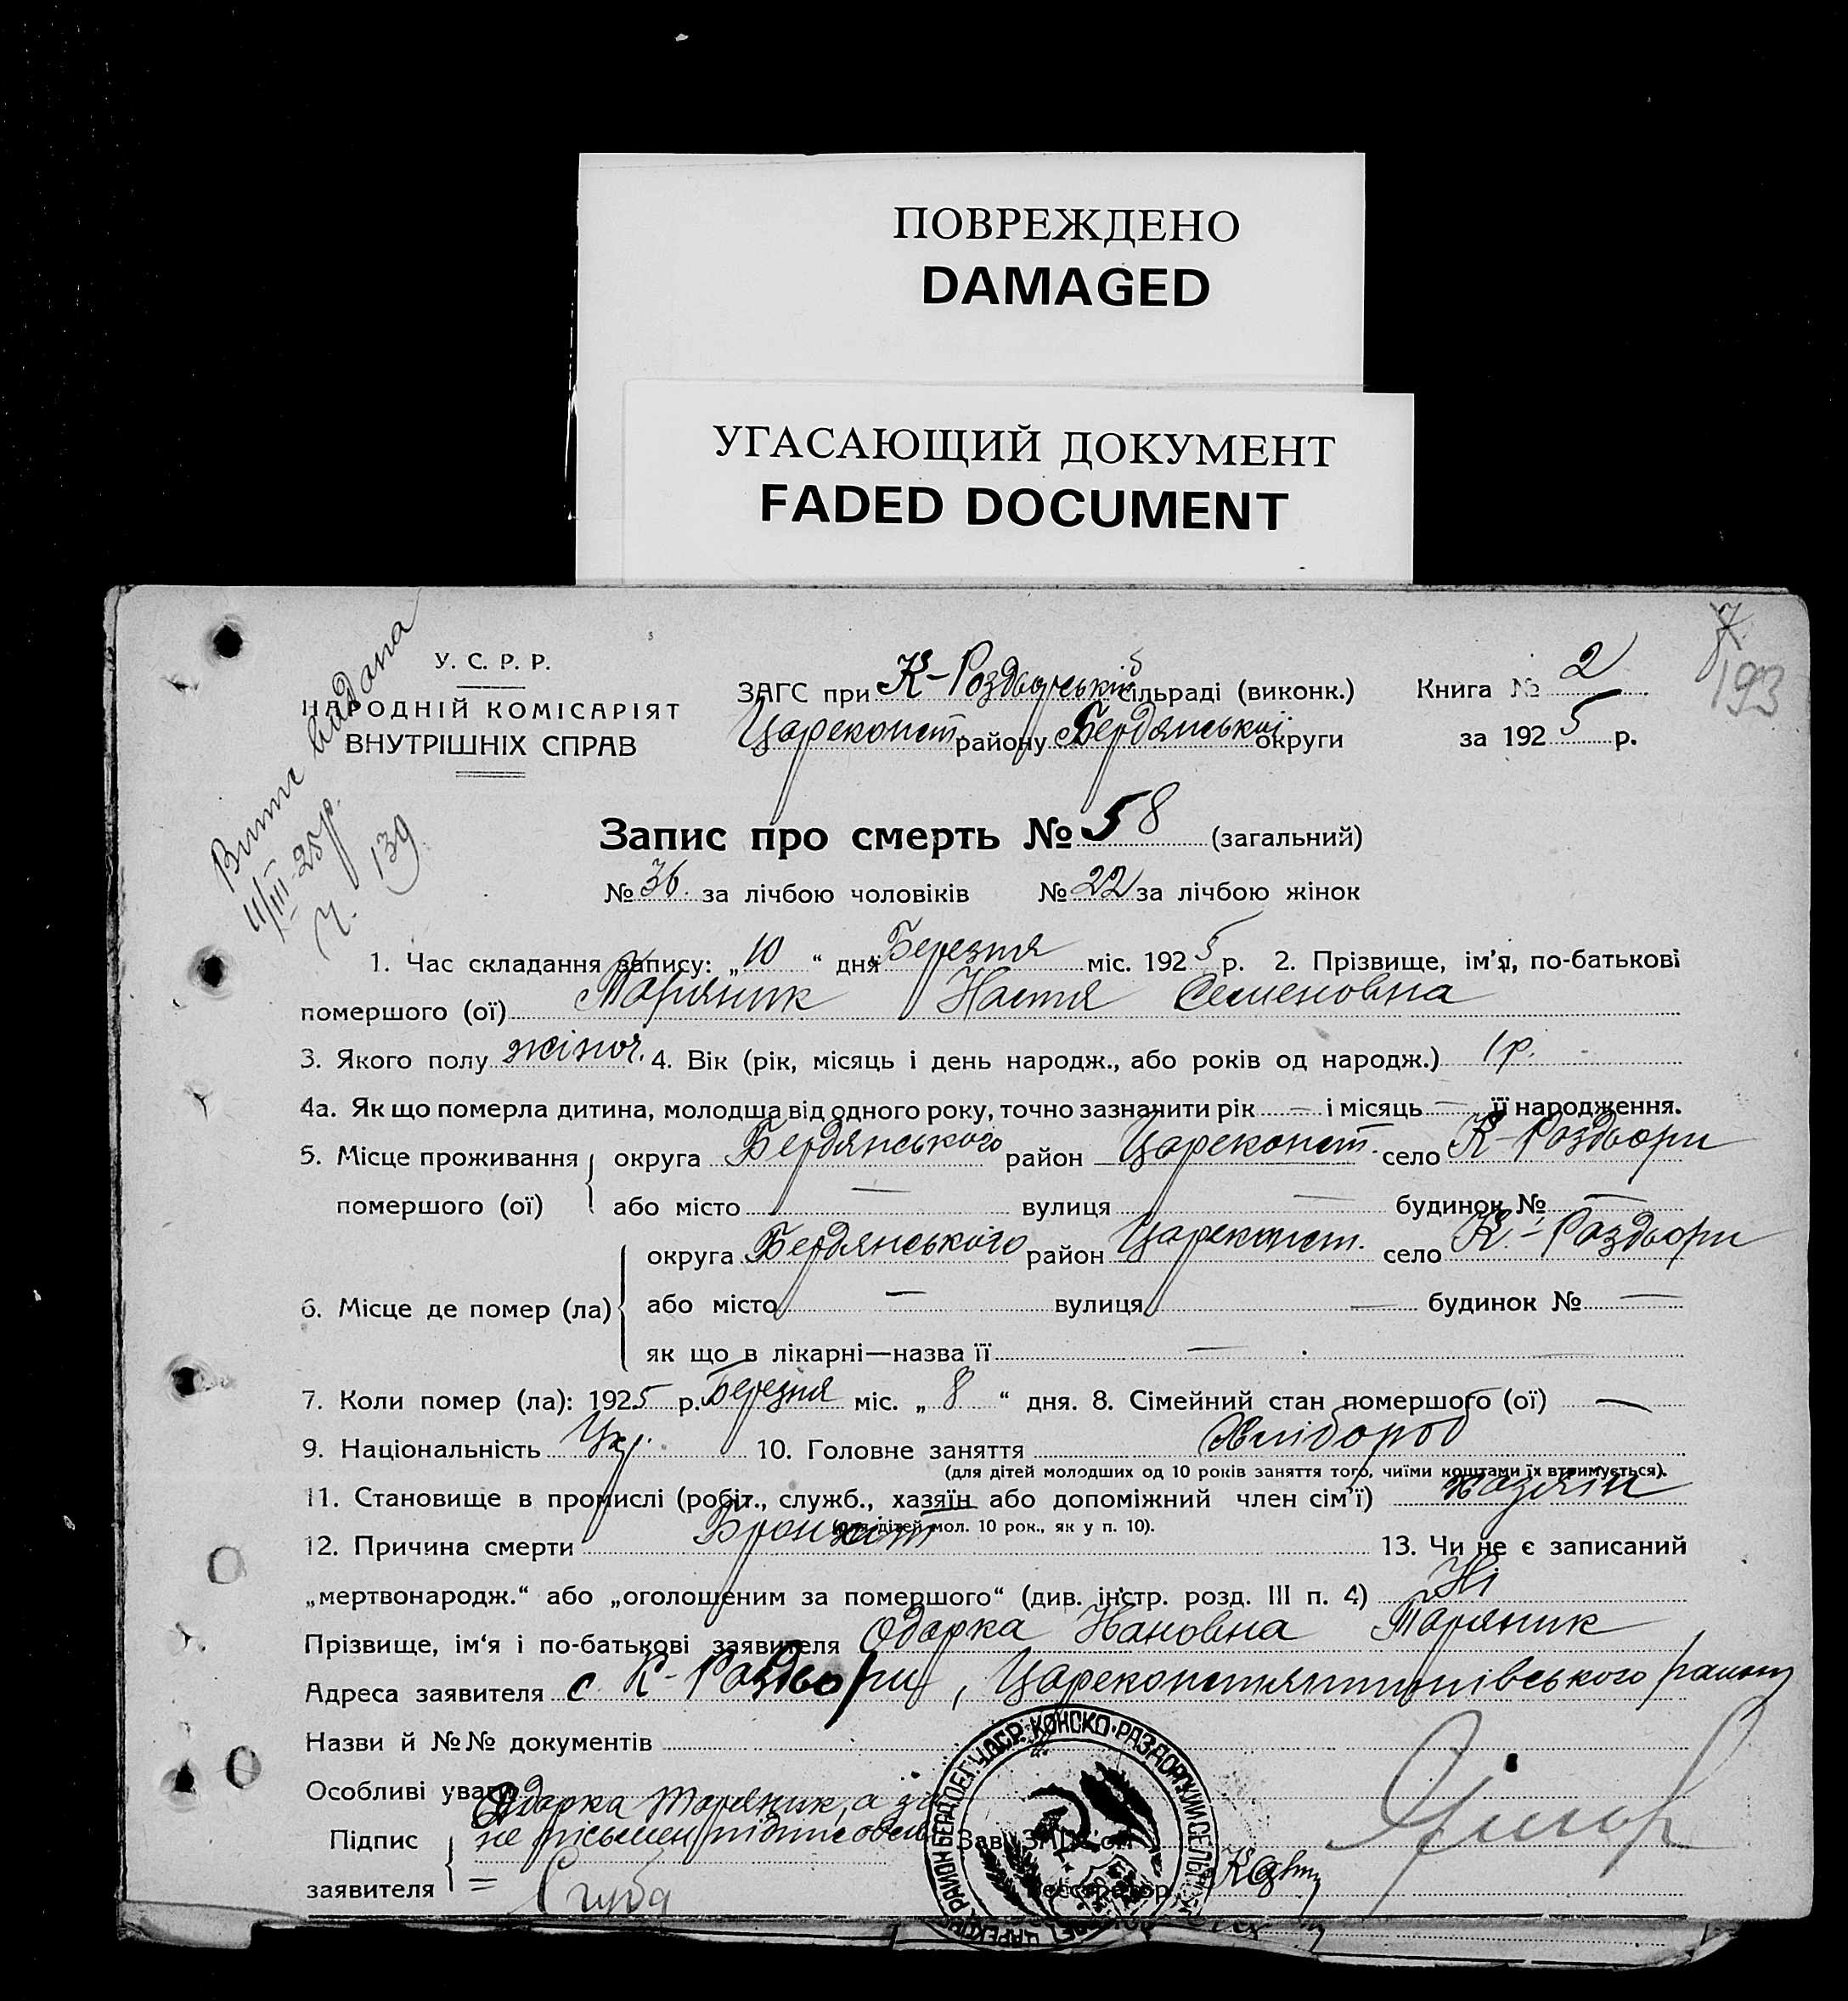 ПОВРЕЖДЕНО
DAMAGED
УГАСАЮЩИЙ ДОКУМЕНТ
FADED DOCUMENT
193
видана
11/III-25р.
139
У. С. Р. Р.
НАРОДНІЙ КОМІСАРІЯТ
ВНУТРІШНІХ СПРАВ
ЗАГС при К-Роздорській сільраді (виконк.) Книга № 2
Царекопст. району Бердянської округи за 1925 р.
Запис про смерть № 58 (загальний)
№ 36. за лічбою чоловіків № 22 за лічбою жінок
1. Час складання запису: „10“ дня Березня міс. 1925 р. 2. Прізвище, ім'я, по-батькові
помершого (ої) Таряник Настя Семеновна
3. Якого полу жіноч. 4. Вік (рік, місяць і день народж., або років од народж.) 1 р.
4а. Як що померла дитина, молодша від одного року, точно зазначити рік — і місяць — її народження.
5. Місце проживання округа Бердянського район Царекопст. село К-Роздори
помершого (ої) або місто — вулиця — будинок № —
округа Бердянського район Царекопст. село К-Роздори
6. Місце де помер (ла) або місто — вулиця — будинок № —
як що в лікарні—назва її —
7. Коли помер (ла): 1925 р. Березня міс. „8“ дня. 8. Сімейний стан помершого (ої) —
9. Національність Укр. 10. Головне заняття Хлібороб
(для дітей молодших од 10 років заняття того, чиїми коштами їх втримується).
11. Становище в промислі (робіт., служб., хазяїн або допоміжний член сім'ї) хазяін
(для дітей мол. 10 рок., як у п. 10).
12. Причина смерти Бронхит 13. Чи не є записаний
„мертвонародж.“ або „оголошеним за помершого“ (див. інстр. розд. III п. 4) Ні
Прізвище, ім'я і по-батькові заявителя Одарка Ивановна Таряник
Адреса заявителя с. К-Роздори, Царекопстянтинівського району
Назви й №№ документів
Особливі уваги
Одарка Таряник, а за
Підпис не письмен підписовсь Зав. ЗАГС'ом
заявителя = Реєстратор
КОНСКО-РАЗДОРСКИЙ